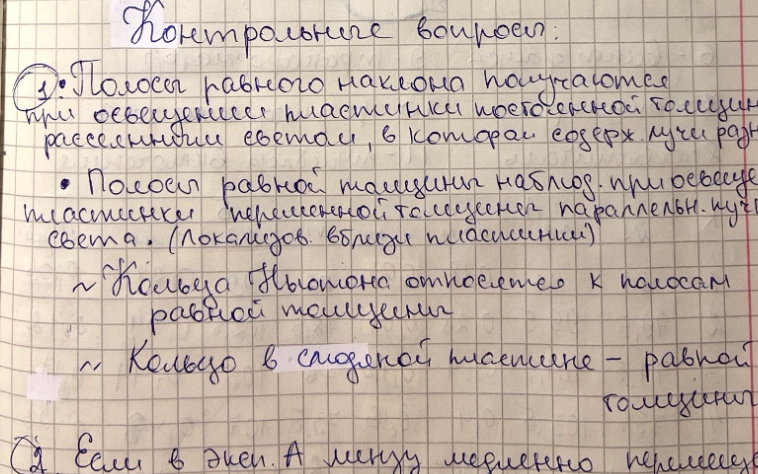 Контрольные вопросы:
1. • Полосы равного наклона получаются
при освещении пластинки постоянной толщин
рассеянным светом, в котором содерж. лучи разн
• Полосы равной толщины наблюд. при освеще
пластинки переменной толщины параллельн. пуч
света. (Локализов. вблизи пластинки)
~ Кольца Ньютона относятся к полосам
равной толщины
~ Кольцо в слюдяной пластине – равной
толщины
2. Если в эксп. А линзу медленно перемеще